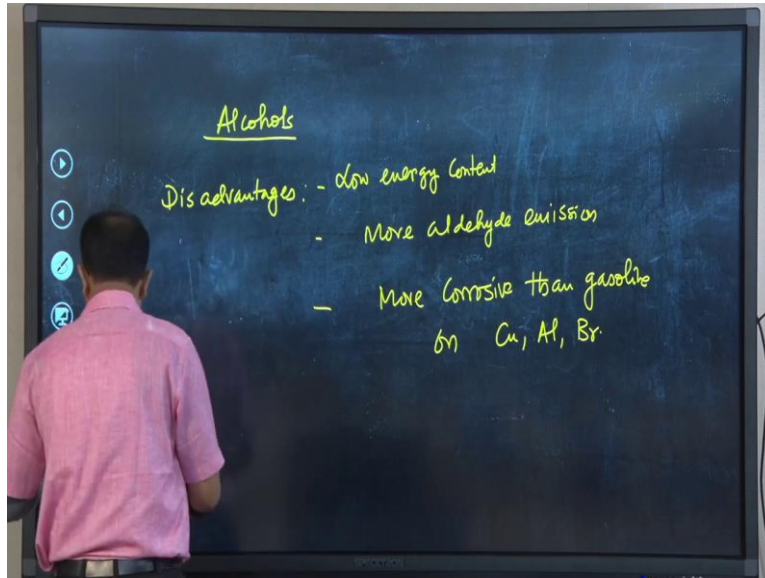 Alcohols
Disadvantages: - Low energy content
- More aldehyde emission
- More Corrosive than gasoline
on Cu, Al, Br.